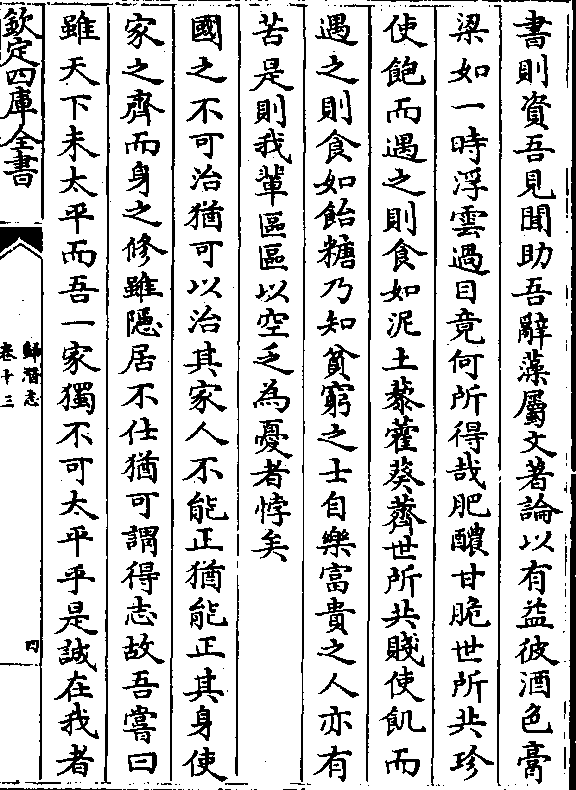 書則資吾見聞助吾辭藻屬文著論以有益彼酒色膏
梁如一時浮雲過目竟何所得哉肥醲甘脆世所共珍
使飽而遇之則食如泥土藜藿葵薺世所共賤使飢而
遇之則食如飴糖乃知貧窮之士自樂富貴之人亦有
苦是則我輩區區以空乏為憂者悖矣
國之不可治猶可以治其家人不能正猶能正其身使
家之齊而身之修雖隱居不仕猶可謂得志故吾嘗曰
雖天下未太平而吾一家獨不可太平乎是誠在我者
欽定四庫全書
歸潛志
卷十三
四